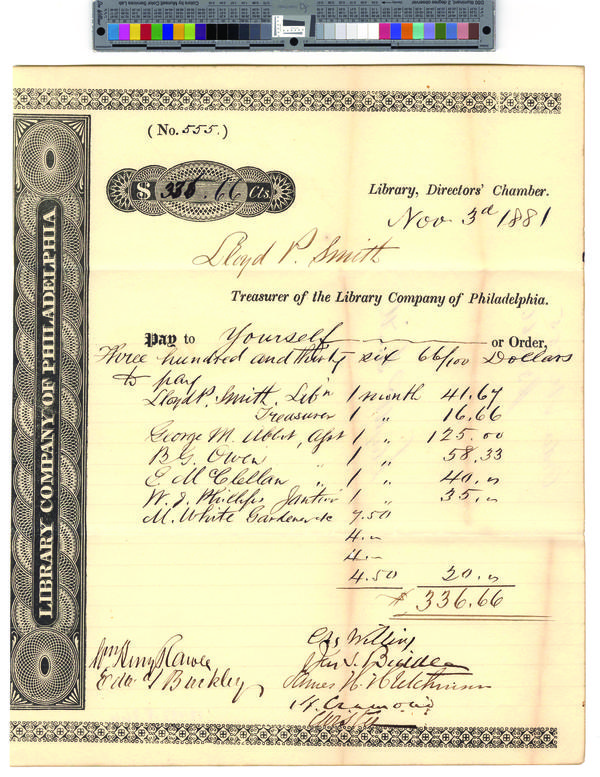 (No. 555.)
$ 336.66 Cts.
Library, Directors' Chamber.
Nov 3d 1881
Lloyd P. Smith
Treasurer of the Library Company of Philadelphia.
Pay to Yourself or Order,
Three hundred and thirty six 66/100 Dollars
to pay
Lloyd P. Smith, Lib'n 1 month 41.67
Treasurer 1 " 16.66
George M. Abbot, Asst 1 " 125.00
B. G. Owen " 1 " 58.33
E McClellan " 1 " 40. "
W. J. Phillips Janitor 1 " 35. "
M. White Gardener &c 7.50
4. "
4. "
4.50 20. "
$ 336.66
Wm Henry Rawle
Chs Willing
Jno. S. Biddle
James H. Hutchinson
LIBRARY COMPANY OF PHILADELPHIA